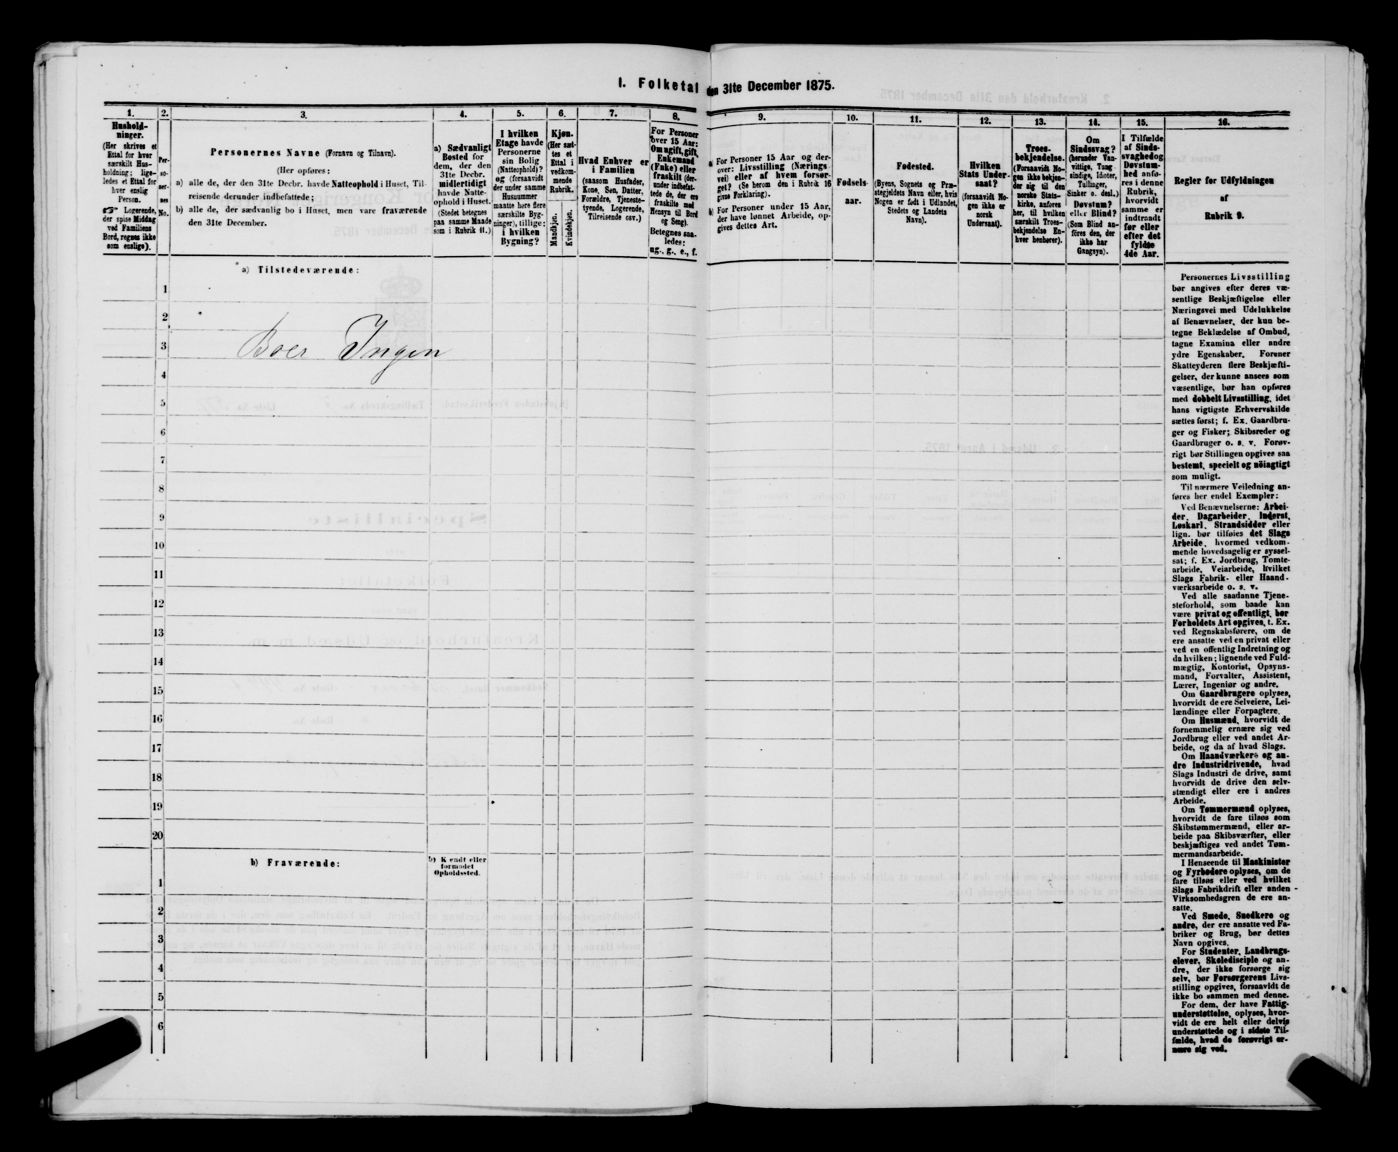 I. Folketal den 31te December 1875.
1.
2.
3.
4.
5.
6.
7.
8.
9.
10.
11.
12.
13.
14.
15.
16.
Hushold-
ninger.
(Her skrives et
Ettal for hver
særskilt Hus-
holdning; lige-
ledes et Ettal for
hver enslig
Person.
☞ Logerende,
der spise Middag
ved Familiens
Bord, regnes ikke
som enslige).
Per-
so-
ner-
nes
No.
Personernes Navne (Fornavn og Tilnavn).
(Her opføres:
a) alle de, der den 31te Decbr. havde Natteophold i Huset, Til-
reisende derunder indbefattede;
b) alle de, der sædvanlig bo i Huset, men vare fraværende
den 31te December.
a) Sædvanligt
Bosted for
dem, der den
31te Decbr.
midlertidigt
havde Natte-
ophold i Huset.
(Stedet betegnes
paa samme Maade
som i Rubrik 11.)
I hvilken
Etage havde
Personerne
sin Bolig
(Natteophold)?
og (forsaavidt
der under samme
Husnummer
maatte høre flere
særskilte Byg-
ninger), tillige:
i hvilken
Bygning?
Kjøn.
(Her sæt-
tes et
Ettal i
vedkom-
mende
Rubrik.)
Mandkjøn.
Kvindekjøn.
Hvad Enhver er
i Familien
(saasom Husfader,
Kone, Søn, Datter,
Forældre, Tjeneste-
tyende, Logerende,
Tilreisende osv.)
For Personer
over 15 Aar:
Om ugift, gift,
Enkemand
(Enke) eller
fraskilt (der-
under indbefat-
tede de, der ere
fraskilte med
Hensyn til Bord
og Seng)
Betegnes saa-
ledes:
ug., g., e., f.
a) For Personer 15 Aar og der-
over: Livsstilling (Nærings-
vei) eller af hvem forsør-
get? (Se herom den i Rubrik 16
givne Forklaring).
b) For Personer under 15 Aar,
der have lønnet Arbeide, op-
gives dettes Art.
Fødsels-
aar.
Fødested.
(Byens, Sognets og Præ-
stegjeldets Navn eller, hvis
Nogen er født i Udlandet,
Stedets og Landets
Navn).
Hvilken
Stats Under-
saat?
(Forsaavidt No-
gen ikke er
norsk
Undersaat).
Troes-
bekjendelse.
(Forsaavidt No-
gen ikke bekjen-
der sig til den
norske Stats-
kirke, anføres
her, til hvilken
særskilt Troes-
bekjendelse En-
hver henhører).
Om
Sindssvag?
(herunder Van-
vittige, Tung-
sindige, Idioter,
Tullinger,
Sinker o. desl.)
Døvstum?
eller Blind?
(Som Blind an-
føres den, der
ikke har
Gangsyn).
I Tilfælde
af Sinds-
svaghed og
Døvstum-
hed anfø-
res i denne
Rubrik,
hvorvidt
samme er
indtraadt
før eller
efter det
fyldte
4de Aar.
Regler for Udfyldningen
af
Rubrik 9.
a) Tilstedeværende:
1
2
3 Boer Ingen
4
5
6
7
8
9
10
11
12
13
14
15
16
17
18
19
20
b) Fraværende:
b) Kjendt eller
formodet
Opholdssted.
1
2
3
4
5
6
Personernes Livsstilling
bør angives efter deres væ-
sentlige Beskjæftigelse eller
Næringsvei med Udelukkelse
af Benævnelser, der kun be-
tegne Beklædelse af Ombud,
tagne Examina eller andre
ydre Egenskaber. Forener
Skatteyderen flere Beskjæfti-
gelser, der kunne ansees som
væsentlige, bør han opføres
med dobbelt Livsstilling, idet
hans vigtigste Erhvervskilde
sættes først; f. Ex. Gaardbru-
ger og Fisker; Skibsreder og
Gaardbruger o. s. v. Forøv-
rigt bør Stillingen opgives saa
bestemt, specielt og nøiagtigt
som muligt.
Til nærmere Veiledning an-
føres her endel Exempler:
Ved Benævnelserne: Arbei-
der, Dagarbeider, Inderst,
Løskarl, Strandsidder eller
lign. bør tilføies det Slags
Arbeide, hvormed vedkom-
mende hovedsagelig er syssel-
sat; f. Ex. Jordbrug, Tomte-
arbeide, Veiarbeide, hvilket
Slags Fabrik- eller Haand-
værksarbeide o. s. v.
Ved alle saadanne Tjene-
steforhold, som baade kan
være privat og offentligt, bør
Forholdets Art opgives, t. Ex.
ved Regnskabsførere, om de
ere ansatte ved en privat eller
ved en offentlig Indretning og
da hvilken; lignende ved Fuld-
mægtig, Kontorist, Opsyns-
mand, Forvalter, Assistent,
Lærer, Ingeniør og andre.
Om Gaardbrugere oplyses,
hvorvidt de ere Selveiere, Lei-
lændinge eller Forpagtere.
Om Husmænd, hvorvidt de
fornemmelig ernære sig ved
Jordbrug eller ved andet Ar-
beide, og da af hvad Slags.
Om Haandværkere og an-
dre Industridrivende, hvad
Slags Industri de drive, samt
hvorvidt de drive den selv-
stændigt eller ere i andres
Arbeide.
Om Tømmermænd oplyses,
hvorvidt de fare tilsøs som
Skibstømmermænd, eller ar-
beide paa Skibsværfter, eller
beskjæftiges ved andet Tøm-
mermandsarbeide.
I Henseende til Maskinister
og Fyrbødere oplyses, om de
fare tilsøs eller ved hvilket
Slags Fabrikdrift eller anden
Virksomhedsgren de ere an-
satte.
Ved Smede, Snedkere og
andre, der ere ansatte ved Fa-
briker og Brug, bør dettes
Navn opgives.
For Studenter, Landbrugs-
elever, Skoledisciple og an-
dre, der ikke forsørge sig
selv, bør Forsørgerens Livs-
stilling opgives, forsaavidt de
ikke bo sammen med denne.
For dem, der have Fattig-
understøttelse, oplyses, hvor-
vidt de ere helt eller delvis
understøttede og i sidste Til-
fælde, hvad de forøvrigt er-
nære sig ved.